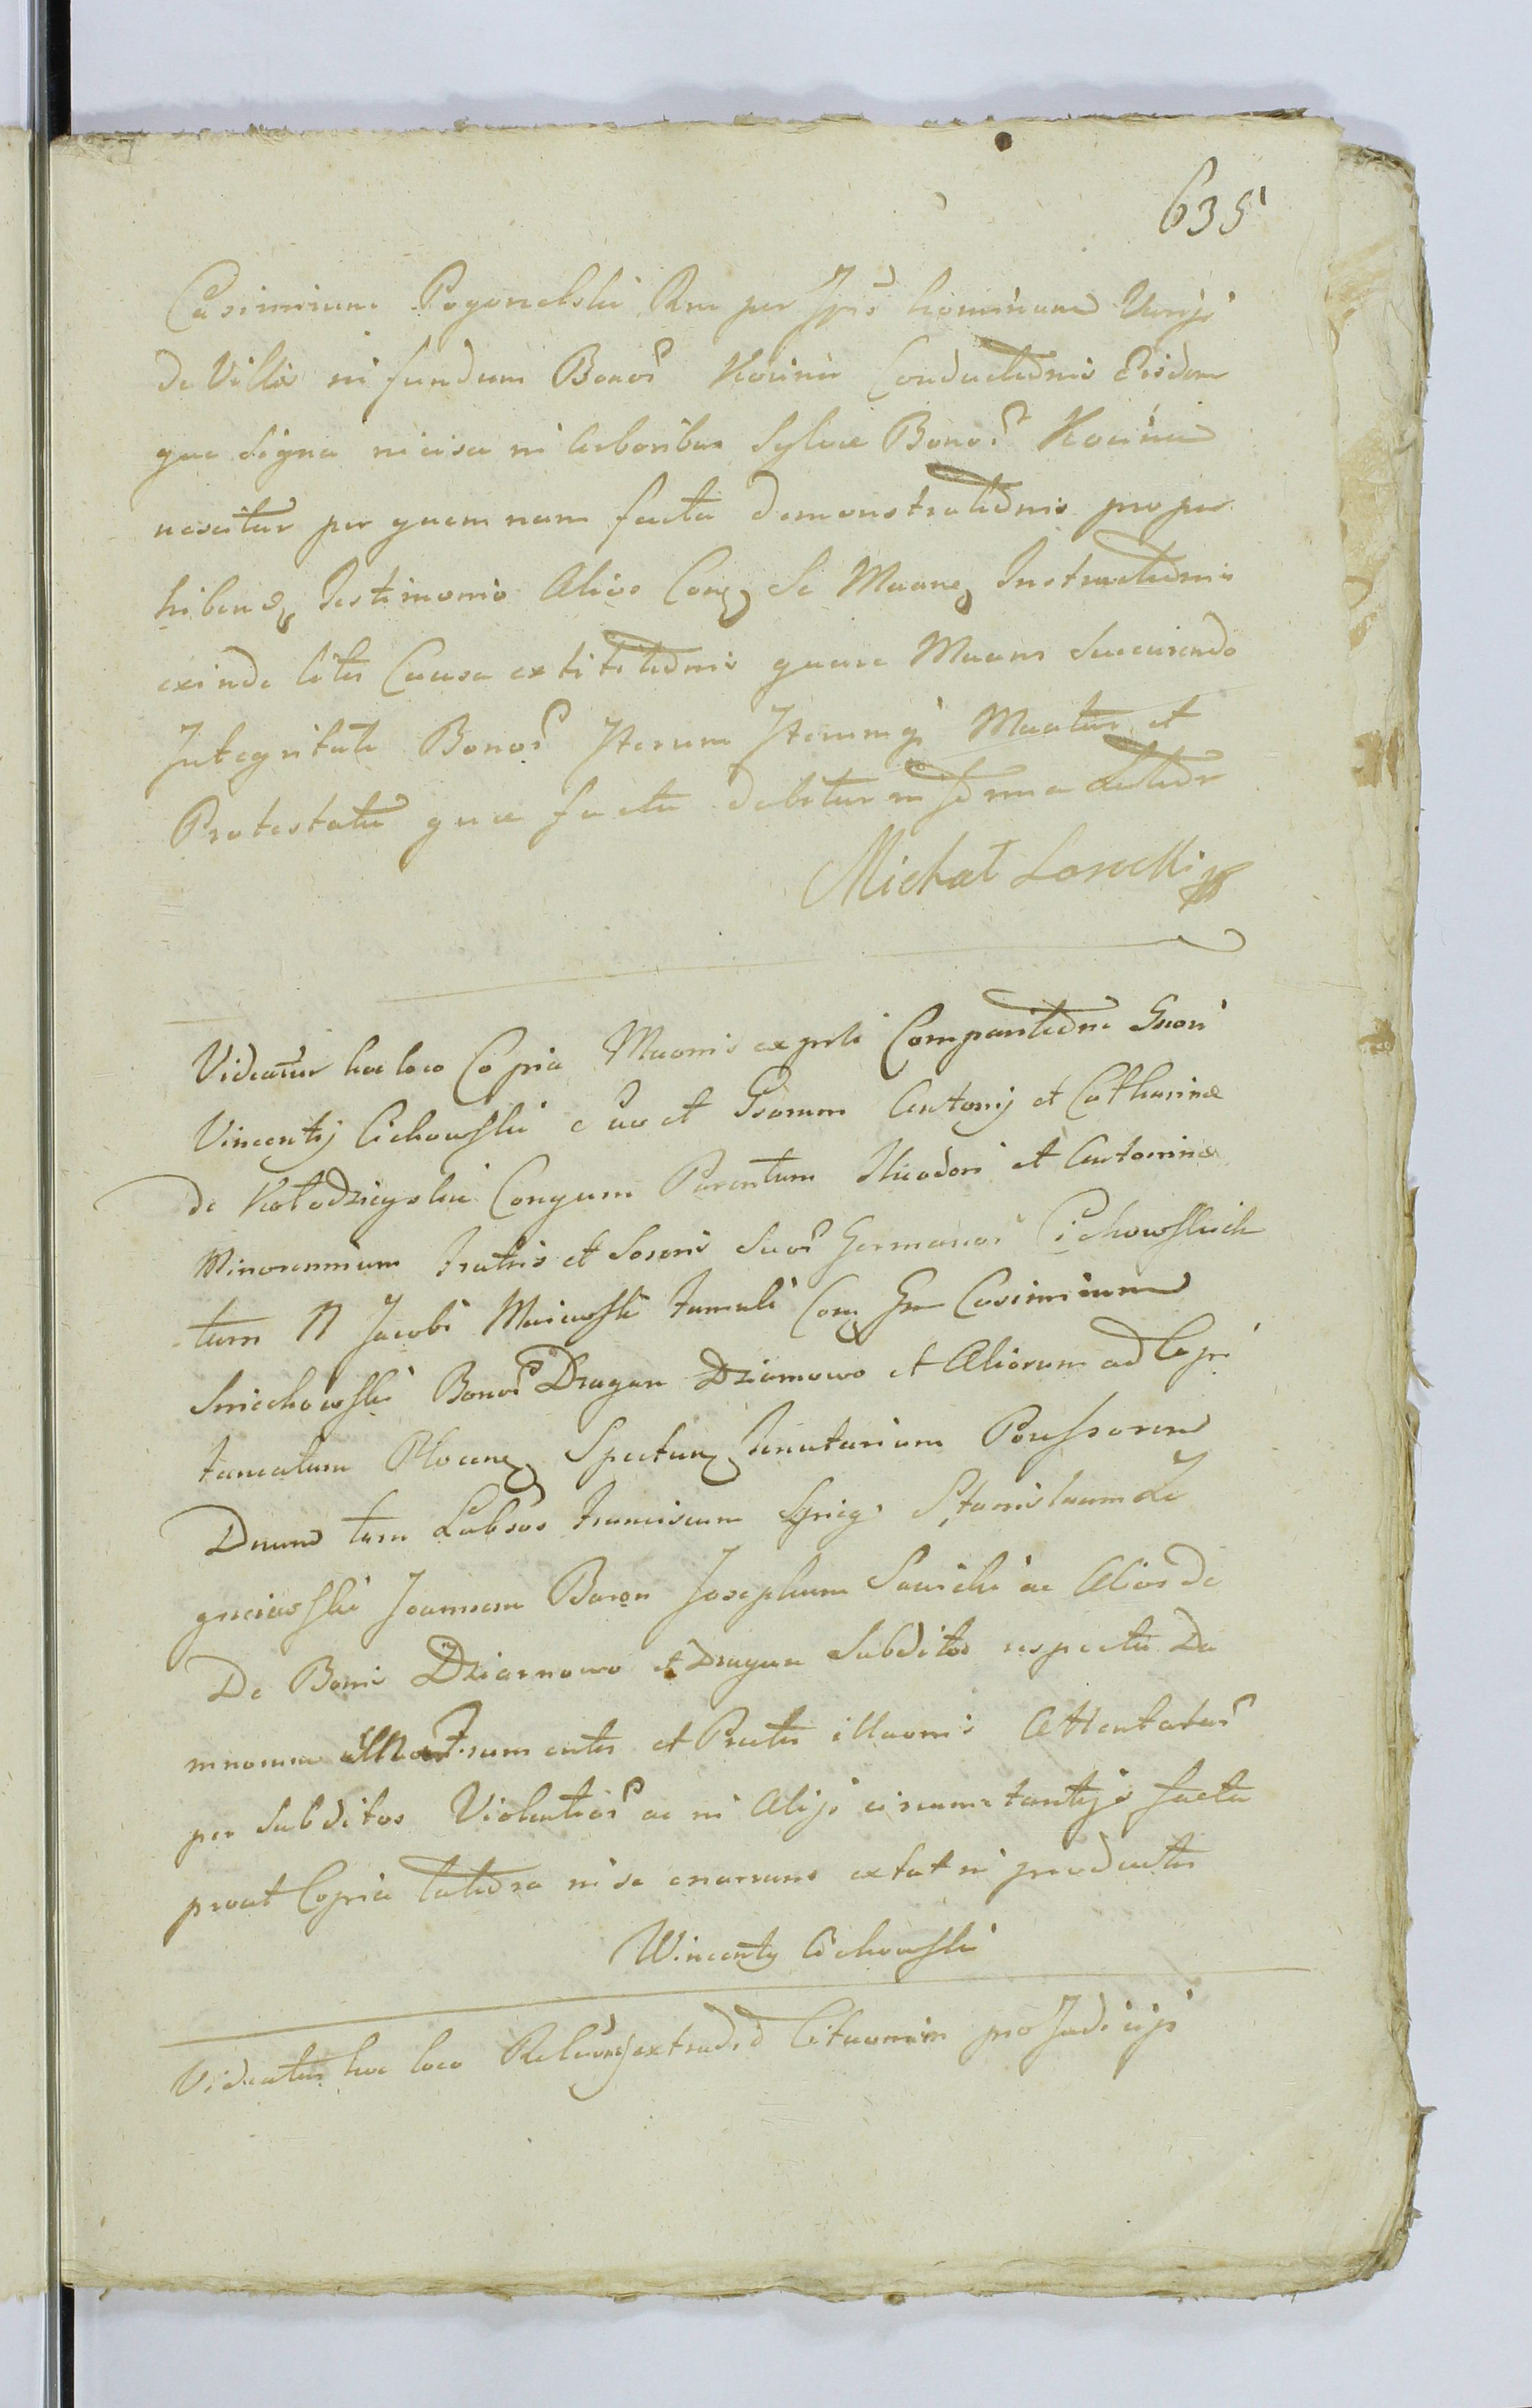 635
Casimirum Pogorzelski Rm per Ipis hominum Varijs
de Villis in fundum Bonor Kocina Conductionis Eisdem
que Signa incisa in Arboribus Sylvae Bonor Kocina
nescitur per quem nam facta demonstrationis pro per
hiben Testimonio Alios Con Se Maane Instructionis
exinde litis Causa extititionis quare Maans Succurendo
Integritati Bonor Iterum Iterumq Maatur et
Protestatur quae facta
Michał Łosocki
Videatur hoc loco Copia Maonis ex parte Comparitione Gnosi
Vincentij Cichowski suo et Gsorum Antonij et Catharinae
de Kołodzieyskie Conjgum Parentum Theodori et Antoninae
Minorennium Fratris et Sororis Suor Germanor Cichowskich
tum N Jacobi Maiewski Famuli Con Gm Casimirum
Smiechowski Bonor Dragun Dziarnowo et Aliorum ad Capi
taneatum Plocen Spectan Tenutarium Possessorem
Dnum tum Labsos Franciscum Stanislaum Ze
gneiewski Joannem Baron Josephum Sawicki ac Alios de
De Bonis Dziarnowo et Dragun Subditos respectu Da
mnorum in frumentis et Pratis illaonis Attentator
per Subditos Violentior ac in Alijs circumstantijs facta
prout Copia latiora in se enarrans extat in productis
Wincenty Cichowski
Videatur hoc loco Relaonis extradid Citaonum pro Judicijs